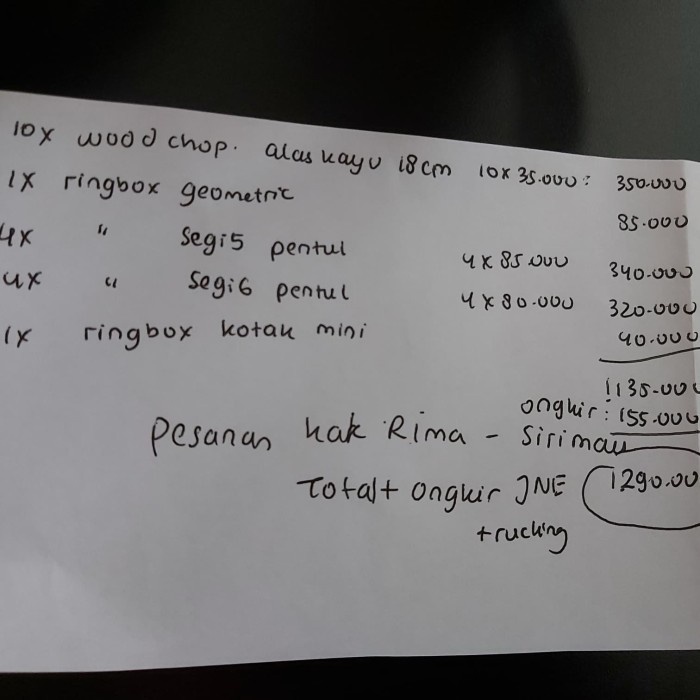 10x wood chop. alas kayu 18 cm 10 x 35.000 : 350.000
1x ringbox geometric 85.000
4x " segi5 pentul 4 x 85.000 340.000
4x " segi6 pentul 4 x 80.000 320.000
1x ringbox kotak mini 40.000
1135.000
ongkir : 155.000
Pesanan kak Rima - Sirimau
Total + ongkir JNE 1290.00
trucking